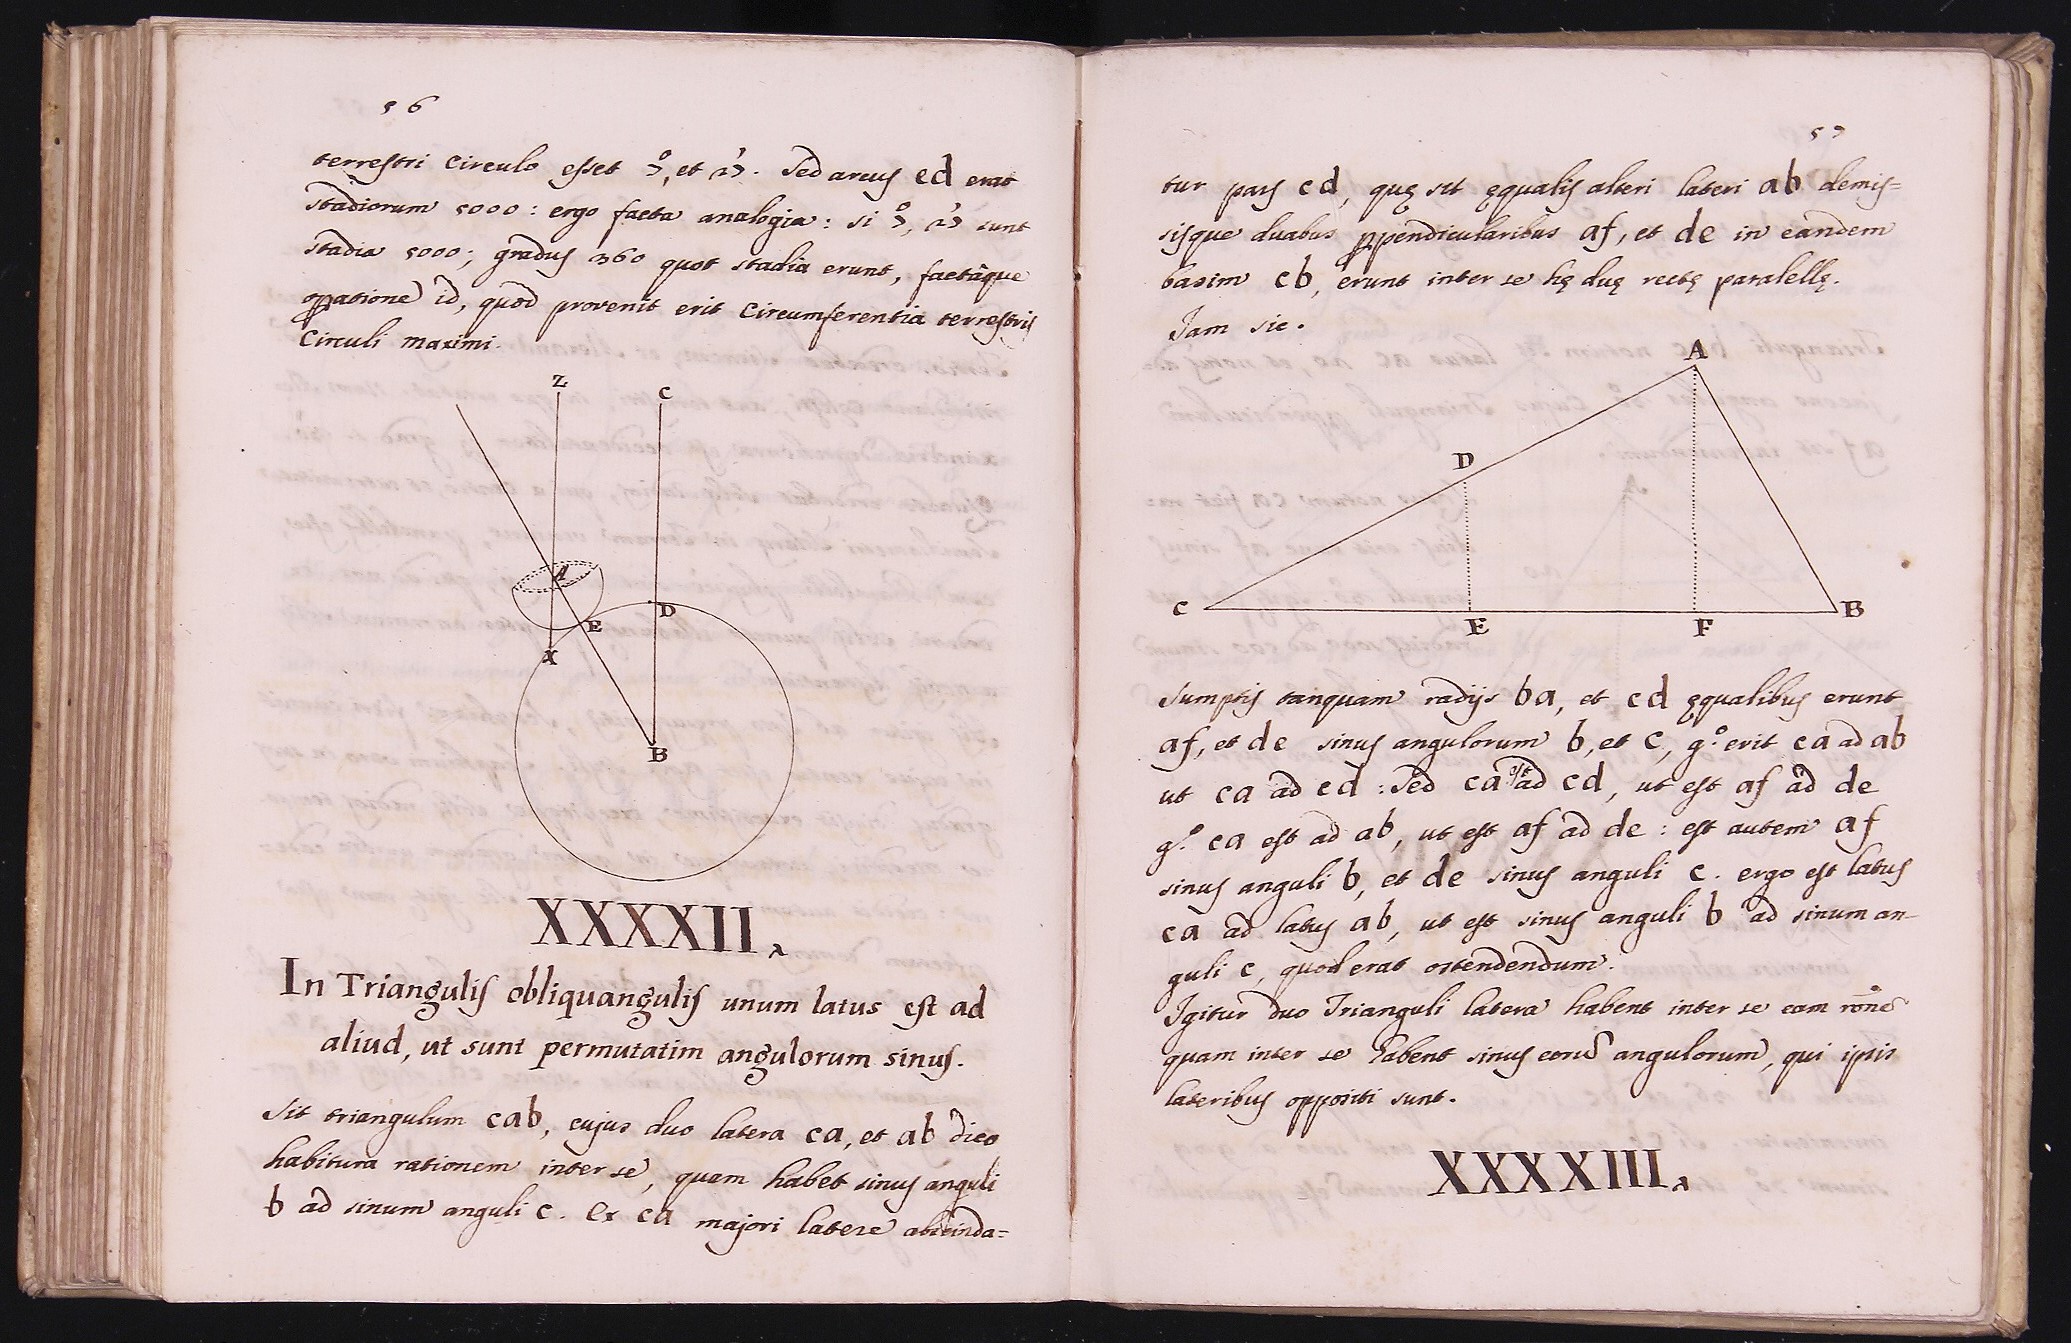 56
terrestri circulo esset 7°, et 12'. Sed arcus ed erat
stadiorum 5000: ergo facta analogia: si 7°, 12' sunt
stadia 5000; gradus 360 quot stadia erunt, factâque
opatione id, quod provenit erit Circumferentia terrestris
Circuli maximi.
Z
C
A
D
E
X
B
XXXXII.a
In Triangulis obliquangulis unum latus est ad
aliud, ut sunt permutatim angulorum sinus.
Sit triangulum cab, cujus duo latera ca, et ab dico
habitura rationem inter se, quam habet sinus anguli
b ad sinum anguli c. Ex ca majori latere abscinda=
57
tur pars cd, quę sit ęqualis alteri lateri ab demis=
sisque duabus ppendicularibus af, et de in eandem
basim cb, erunt inter se hę duę rectę paralellę.
Jam sic.
A
D
C
E
F
B
Sumptis tanquam radijs ba, et cd ęqualibus erunt
af, et de sinus angulorum b, et c, g.° erit ca ad ab
ut ca ad cd: Sed ca est ad cd, ut est af ad de
g.° ca est ad ab, ut est af ad de: est autem af
sinus anguli b, et de sinus anguli c. ergo est latus
ca ad latus ab, ut est sinus anguli b ad sinum an-
guli c, quod erat ostendendum.
Igitur duo Trianguli latera habent inter se eam rõne
quam inter se habent sinus eorũ angulorum, qui ipsis
lateribus oppositi sunt.
XXXXIII.a